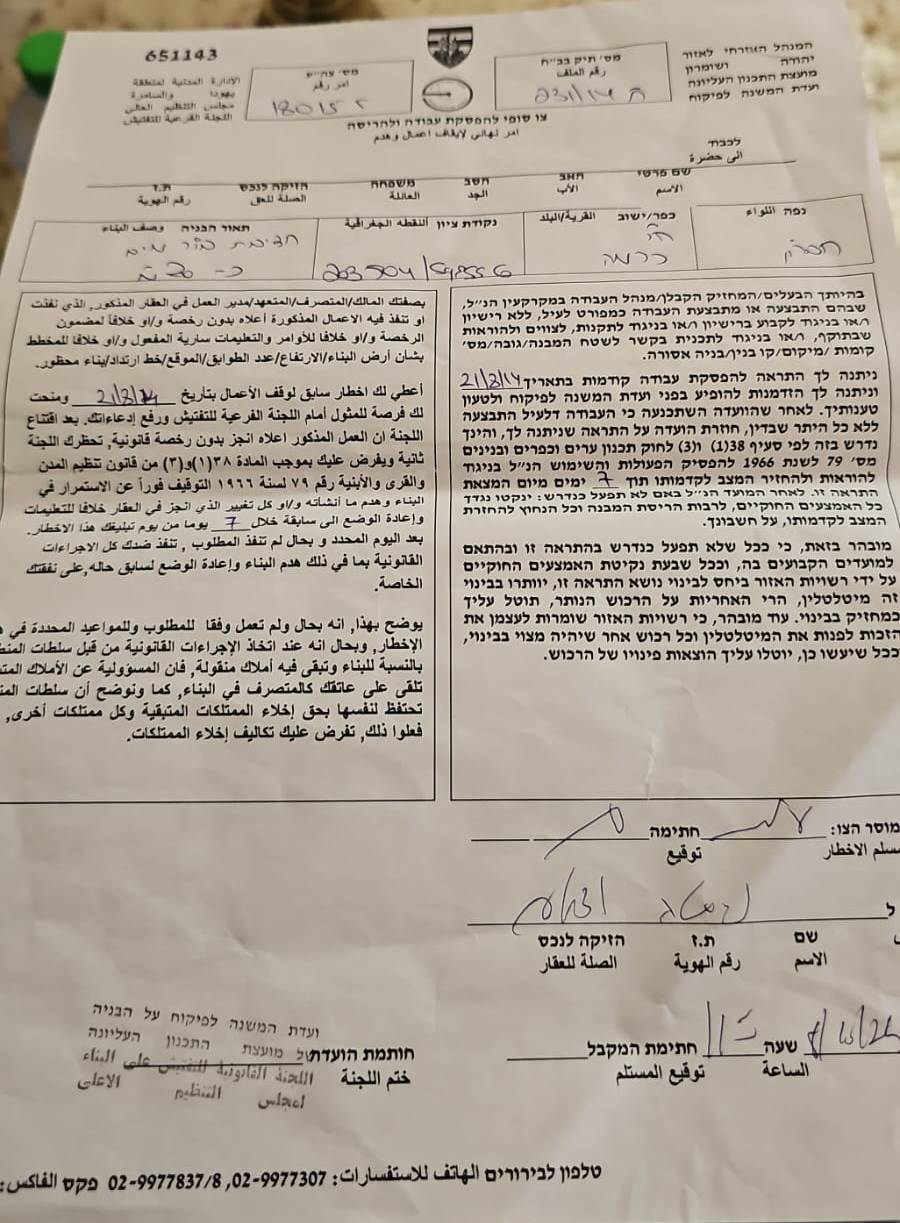 651143
המנהל האזרחי לאזור
יהודה ושומרון
מועצת התכנון העליונה
ועדת המשנה לפיקוח
מס' תיק בב"ח
رقم الملف
231/14
امر رقم
الإدارة المدنية لمنطقة
يهودا والسامرة
مجلس التنظيم العالي
اللجنة الفرعية للتفتيش
צו סופי להפסקת עבודה ולהריסה
امر نهائي لإيقاف اعمال وهدم
לכבוד
الى حضرة
שם פרטי האב הסב משפחה הזיקה לנכס ת.ז
الاسم الأب الجد العائلة الصلة للحق رقم الهوية
נפה اللواء
חברון
כפר/ישוב القرية/البلد
כרמה
נקודת ציון النقطة الجغرافية
תאור הבניה وصف البناء
בהיותך הבעלים/המחזיק הקבלן/מנהל העבודה במקרקעין הנ"ל,
שבהם התבצעה או מתבצעת העבודה כמפורט לעיל, ללא רישיון
ו/או בניגוד לקבוע ברישיון ו/או בניגוד לתקנות, לצווים ולהוראות
שבתוקף, ו/או בניגוד לתכנית בקשר לשטח המבנה/גובה/מס'
קומות /מיקום/קו בנין/בניה אסורה.
ניתנה לך התראה להפסקת עבודה קודמות בתאריך 21/8/14
וניתנה לך הזדמנות להופיע בפני ועדת המשנה לפיקוח ולטעון
טענותיך. לאחר שהוועדה השתכנעה כי העבודה דלעיל התבצעה
ללא כל היתר שבדין, חוזרת הועדה על התראה שניתנה לך, והינך
נדרש בזה לפי סעיף 38(1) ו(3) לחוק תכנון ערים וכפרים ובנינים
מס' 79 לשנת 1966 להפסיק הפעולות והשימוש הנ"ל בניגוד
להוראות ולהחזיר המצב לקדמותו תוך 7 ימים מיום המצאת
התראה זו. לאחר המועד הנ"ל באם לא תפעל כנדרש: ינקטו נגדך
כל האמצעים החוקיים, לרבות הריסת המבנה וכל הנחוץ להחזרת
המצב לקדמותו, על חשבונך.
מובהר בזאת, כי ככל שלא תפעל כנדרש בהתראה זו ובהתאם
למועדים הקבועים בה, וככל שבעת נקיטת האמצעים החוקיים
על ידי רשויות האזור ביחס לבינוי נושא התראה זו, יוותרו בבינוי
זה מיטלטלין, הרי האחריות על הרכוש הנותר, תוטל עליך
כמחזיק בבינוי. עוד מובהר, כי רשויות האזור שומרות לעצמן את
הזכות לפנות את המיטלטלין וכל רכוש אחר שיהיה מצוי בבינוי,
וככל שיעשו כן, יוטלו עליך הוצאות פינויו של הרכוש.
بصفتك المالك/المتصرف/المتعهد/مدير العمل في العقار المذكور, الذي نفذت
او تنفذ فيه الاعمال المذكورة أعلاه بدون رخصة و/او خلافا لمضمون
الرخصة و/او خلافا للأوامر والتعليمات سارية المفعول و/او خلافا للمخطط
بشأن أرض البناء/الارتفاع/عدد الطوابق/الموقع/خط ارتداد/بناء محظور.
أعطي لك اخطار سابق لوقف الأعمال بتأريخ 21/8/14 ومنحت
لك فرصة للمثول أمام اللجنة الفرعية للتفتيش ورفع إدعاءاتك. بعد اقتناع
اللجنة ان العمل المذكور اعلاه انجز بدون رخصة قانونية, تحظرك اللجنة
ثانية ويفرض عليك بموجب المادة ٣٨(١)و(٣) من قانون تنظيم المدن
والقرى والأبنية رقم ٧٩ لسنة ١٩٦٦ التوقيف فوراً عن الاستمرار في
البناء وهدم ما أنشأته و/او كل تغيير الذي انجز في العقار خلافا للتعليمات
وإعادة الوضع الى سابقة خلال 7 يوما من يوم تبليغك هذا الاخطار.
بعد اليوم المحدد و بحال لم تنفذ المطلوب , تنفذ ضدك كل الاجراءات
القانونية بما في ذلك هدم البناء وإعادة الوضع لسابق حاله,على نفقتك
الخاصة.
يوضح بهذا, انه بحال ولم تعمل وفقا للمطلوب وللمواعيد المحددة في
الإخطار, وبحال انه عند اتخاذ الإجراءات القانونية من قبل سلطات
بالنسبة للبناء وتبقى فيه أملاك منقولة, فان المسؤولية عن الأملاك
تلقى على عاتقك كالمتصرف في البناء, كما ونوضح أن سلطات
تحتفظ لنفسها بحق إخلاء الممتلكات المتبقية وكل ممتلكات أخرى,
فعلوا ذلك, تفرض عليك تكاليف إخلاء الممتلكات.
מוסר הצו: חתימה
مسلم الاخطار توقيع
שם ת.ז הזיקה לנכס
الاسم رقم الهوية الصلة للعقار
שעה חתימת המקבל
الساعة توقيع المستلم
חותמת הועדה
ختم اللجنة
ועדת המשנה לפיקוח על הבניה
של מועצת התכנון העליונה
اللجنة القانونية للتفتيش على البناء
لمجلس التنظيم الاعلى
טלפון לבירורים الهاتف للاستفسارات: 02-9977307, 02-9977837/8 פקס الفاكس: